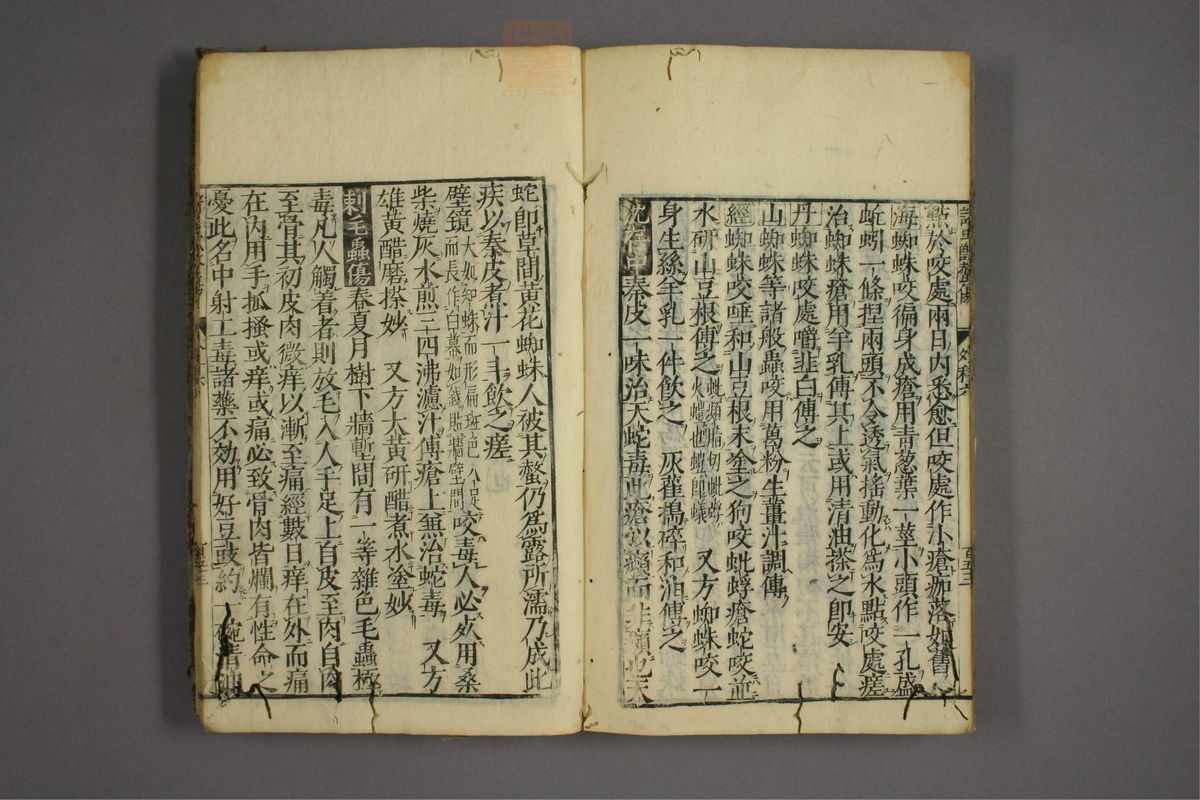 點於咬處兩日内悉愈但咬處作小瘡痂落如舊
海蜘蛛咬徧身成瘡用青葱葉一莖小頭作一孔盛
蚯蚓一條捏兩頭不令透氣搖動化爲水點咬處瘥
治蜘蛛瘡用羊乳傅其上或用清油搽之即安
丹蜘蛛咬處嚼韭白傅之
山蜘蛛等諸般蟲咬用萬粉生薑汁調傅
經蜘蛛咬唾和山豆根末塗之狗咬蚍蜉瘡蛇咬並
水研山豆根傅之 又方蜘蛛咬一
身生絲羊乳一件飲之 灰藋搗碎和油傅之
沈存中秦皮一味治天蛇毒此瘡似癩而非癩也天
蛇即草間黄花蜘蛛人被其螫仍爲露所濡乃成此
疾以秦皮煮汁一斗飲之瘥
壁鏡大如蜘蛛而形扁斑色八足而長作白幕如錢貼牆壁間咬毒人必死用桑
柴燒灰水煎三四沸濾汁傅瘡上無治蛇毒 又方
雄黄醋磨搽妙 又方大黄研醋煮水塗妙
刺毛蟲傷春夏月樹下牆塹間有一等雜色毛蟲極
毒凡人觸着者則放毛入人手足上自皮至肉自肉
至骨其初皮肉微痒以漸至痛經數日痒在外而痛
在内用手抓搔或痒或痛必致骨肉皆爛有性命之
憂此名中射工毒諸藥不効用好豆豉約一碗清